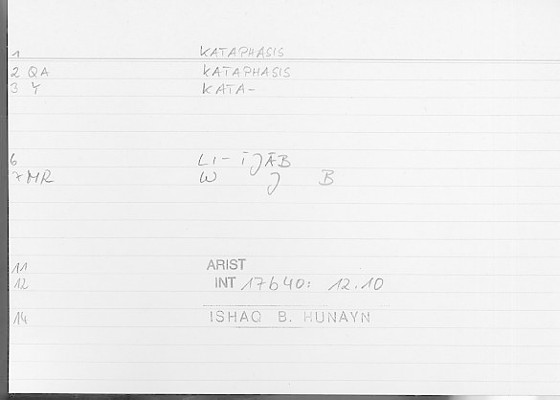 1 KATAPHASIS
2 QA KATAPHASIS
3 Y KATA-
6 LI- ĪJĀB
7 MR W J B
11 ARIST
12 INT 17b40: 12.10
14 ISHAQ B. HUNAYN